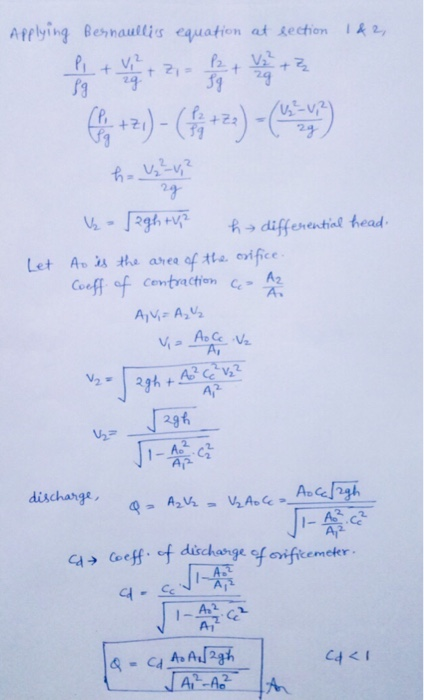 Applying Bernaulli's equation at section 1 & 2,
P₁/ρg + V₁²/2g + Z₁ = P₂/ρg + V₂²/2g + Z₂
(P₁/ρg + Z₁) - (P₂/ρg + Z₂) = (V₂² - V₁²/2g)
h = V₂² - V₁²/2g
V₂ = √(2gh + V₁²) h → differential head.
Let A₀ is the area of the orifice.
Coeff. of contraction Cc = A₂/A₀
A₁V₁ = A₂V₂
V₁ = A₀Cc/A₁ · V₂
V₂ = √(2gh + A₀² Cc² V₂²/A₁²)
V₂ = √2gh / √(1 - A₀²/A₁² · Cc²)
discharge, Q = A₂V₂ = V₂A₀Cc = A₀Cc√2gh / √(1 - A₀²/A₁² · Cc²)
Cd → Coeff. of discharge of orificemeter.
Cd = Cc √(1 - A₀²/A₁²) / √(1 - A₀²/A₁² · Cc²)
Q = Cd A₀A₁√2gh / √(A₁² - A₀²) An Cd < 1